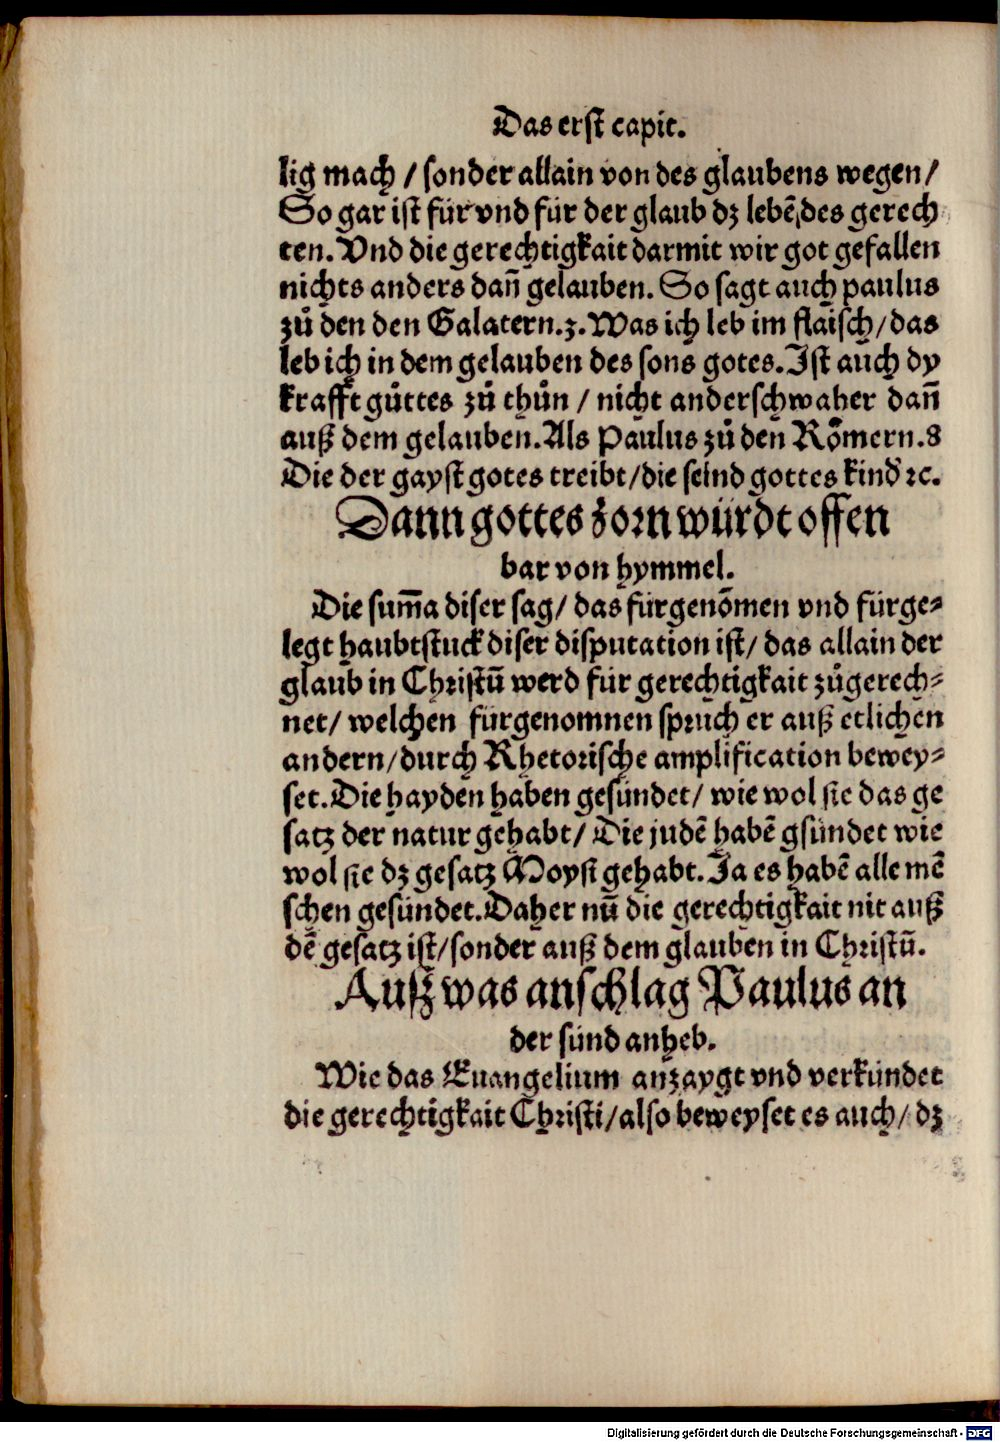 Das erst capit.
lig mach / sonder allain von des glaubens wegen /
So gar ist für vnd für der glaub dz lebē des gerech
ten. Vnd die gerechtigkait darmit wir got gefallen
nichts anders dañ gelauben. So sagt auch paulus
zů den den Galatern. 3. Was ich leb im flaisch / das
leb ich in dem gelauben des sons gotes. Ist auch dy
krafft gůttes zů thůn / nicht anderschwaher dañ
auß dem gelauben. Als Paulus zů den Römern. 8
Die der gayst gotes treibt / die seind gottes kind ꝛc.
Dann gottes zorn würdt offen
bar von hymmel.
Die sum̄a diser sag / das fürgenōmen vnd fürge⸗
legt haubtstuck diser disputation ist / das allain der
glaub in Christū werd für gerechtigkait zůgerech⸗
net / welchen fürgenomnen spruch er auß etlichen
andern / durch Rhetorische amplification bewey⸗
set. Die hayden haben gesündet / wie wol sie das ge
satz der natur gehabt / Die judē habē gsündet wie
wol sie dz gesatz Moysi gehabt. Ja es habē alle mē
schen gesündet. Daher nū die gerechtigkait nit auß
dē gesatz ist / sonder auß dem glauben in Christū.
Auß was anschlag Paulus an
der sünd anheb.
Wie das Euangelium anzaygt vnd verkündet
die gerechtigkait Christi / also beweyset es auch / dz
Digitalisierung gefördert durch die Deutsche Forschungsgemeinschaft - DFG